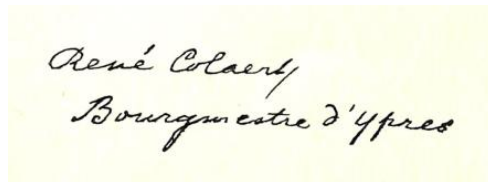 René Colaert,
Bourgmestre d'Ypres